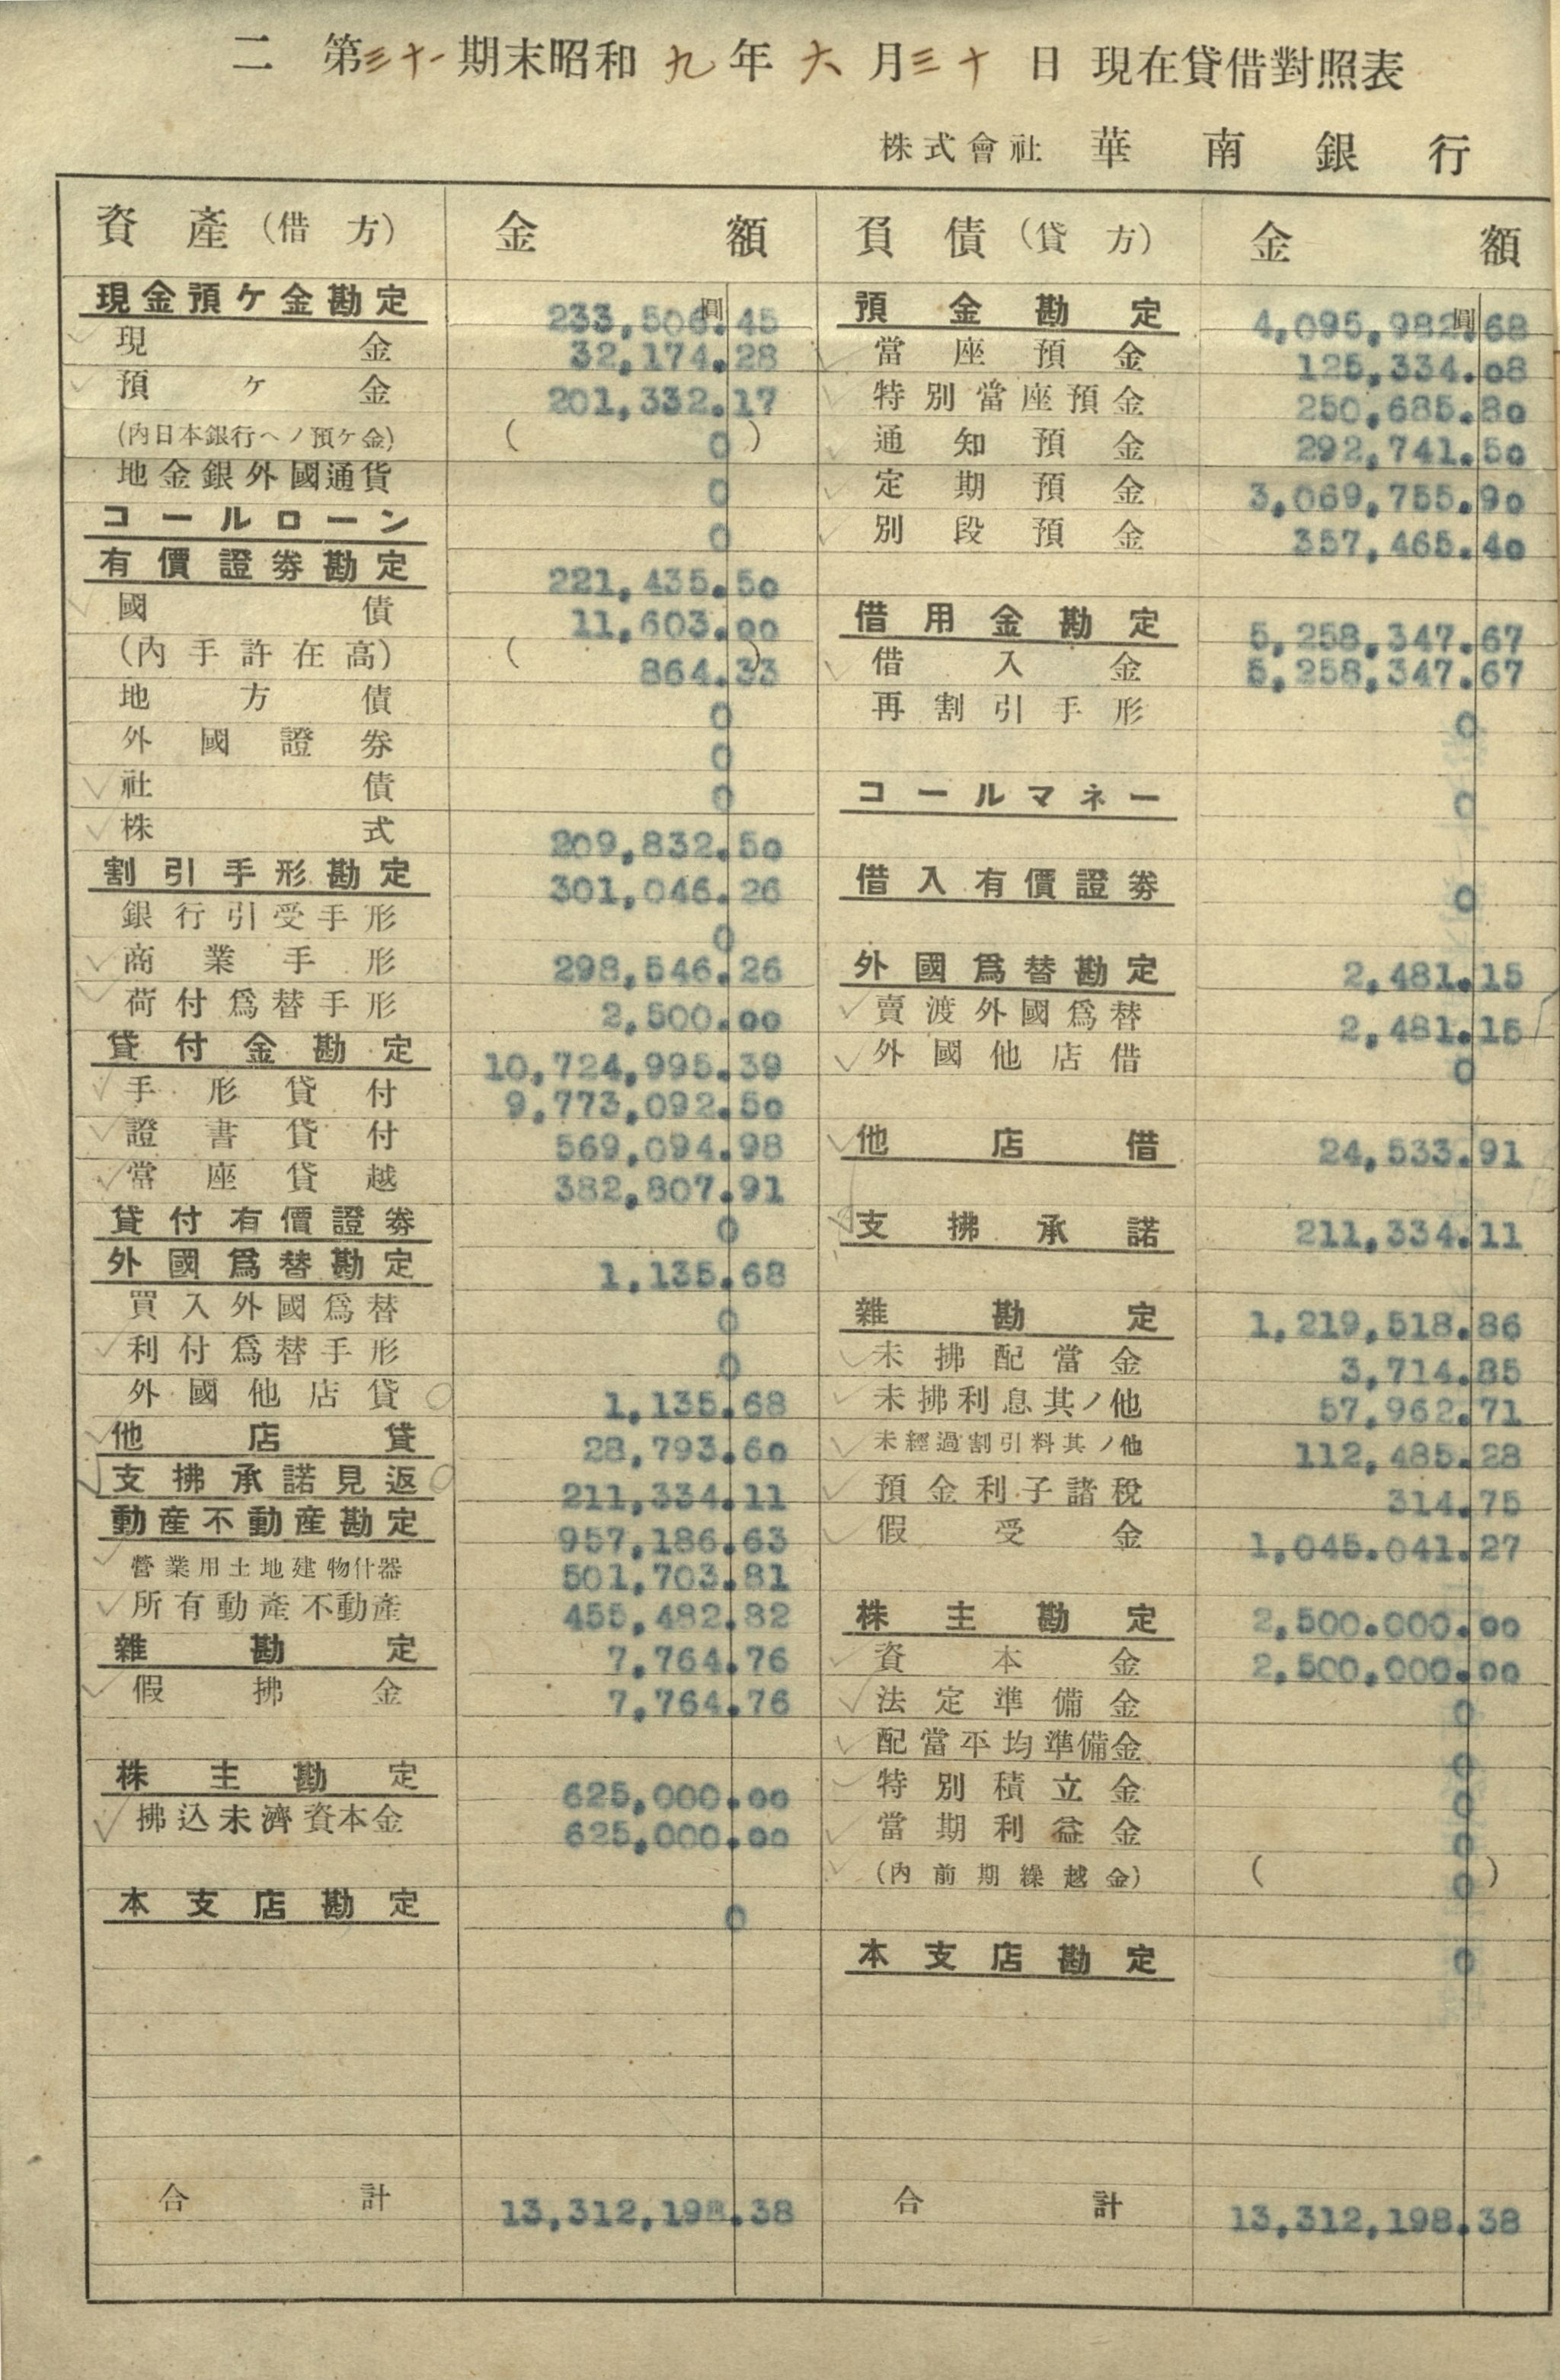 二 第三十一期末昭和九年六月三十日現在貸借對照表
株式會社 華南銀行
資產(借方) 金額
現金預ケ金勘定 233,506.45
現金 32,174.28
預ケ金 201,332.17
(內日本銀行ヘノ預ケ金) (0)
地金銀外國通貨 0
コールローン 0
有價證劵勘定 221,435.50
國債 11,603.00
(內手許在高) (864.33)
地方債 0
外國證券 0
社債 0
株式 209,832.50
割引手形勘定 301,046.26
銀行引受手形 0
商業手形 298,546.26
荷付爲替手形 2,500.00
貸付金勘定 10,724,995.39
手形貸付 9,773,092.50
證書貸付 569,094.98
當座貸越 382,807.91
貸付有價證劵 0
外國爲替勘定 1,135.68
買入外國爲替 0
利付爲替手形 0
外國他店貸 1,135.68
他店貸 28,793.60
支拂承諾見返 211,334.11
動產不動產勘定 957,186.63
營業用土地建物什器 501,703.81
所有動產不動產 455,482.82
雜勘定 7,764.76
假拂金 7,764.76
株主勘定 625,000.00
拂込未濟資本金 625,000.00
本支店勘定 0
合計 13,312,198.38
負債(貸方) 金額
預金勘定 4,095,982.68
當座預金 125,334.08
特別當座預金 250,685.80
通知預金 292,741.50
定期預金 3,069,755.90
別段預金 357,465.40
借用金勘定 5,258,347.67
借入金 5,258,347.67
再割引手形 0
コールマネー 0
借入有價證劵 0
外國爲替勘定 2,481.15
賣渡外國爲替 2,481.15
外國他店借 0
他店借 24,533.91
支拂承諾 211,334.11
雜勘定 1,219,518.86
未拂配當金 3,714.85
未拂利息其ノ他 57,962.71
未經過割引料其ノ他 112,485.28
預金利子諸稅 314.75
假受金 1,045.041.27
株主勘定 2,500.000.00
資本金 2,500,000.00
法定準備金 0
配當平均準備金 0
特別積立金 0
當期利益金 0
(內前期繰越金) (0)
本支店勘定 0
合計 13,312,198.38